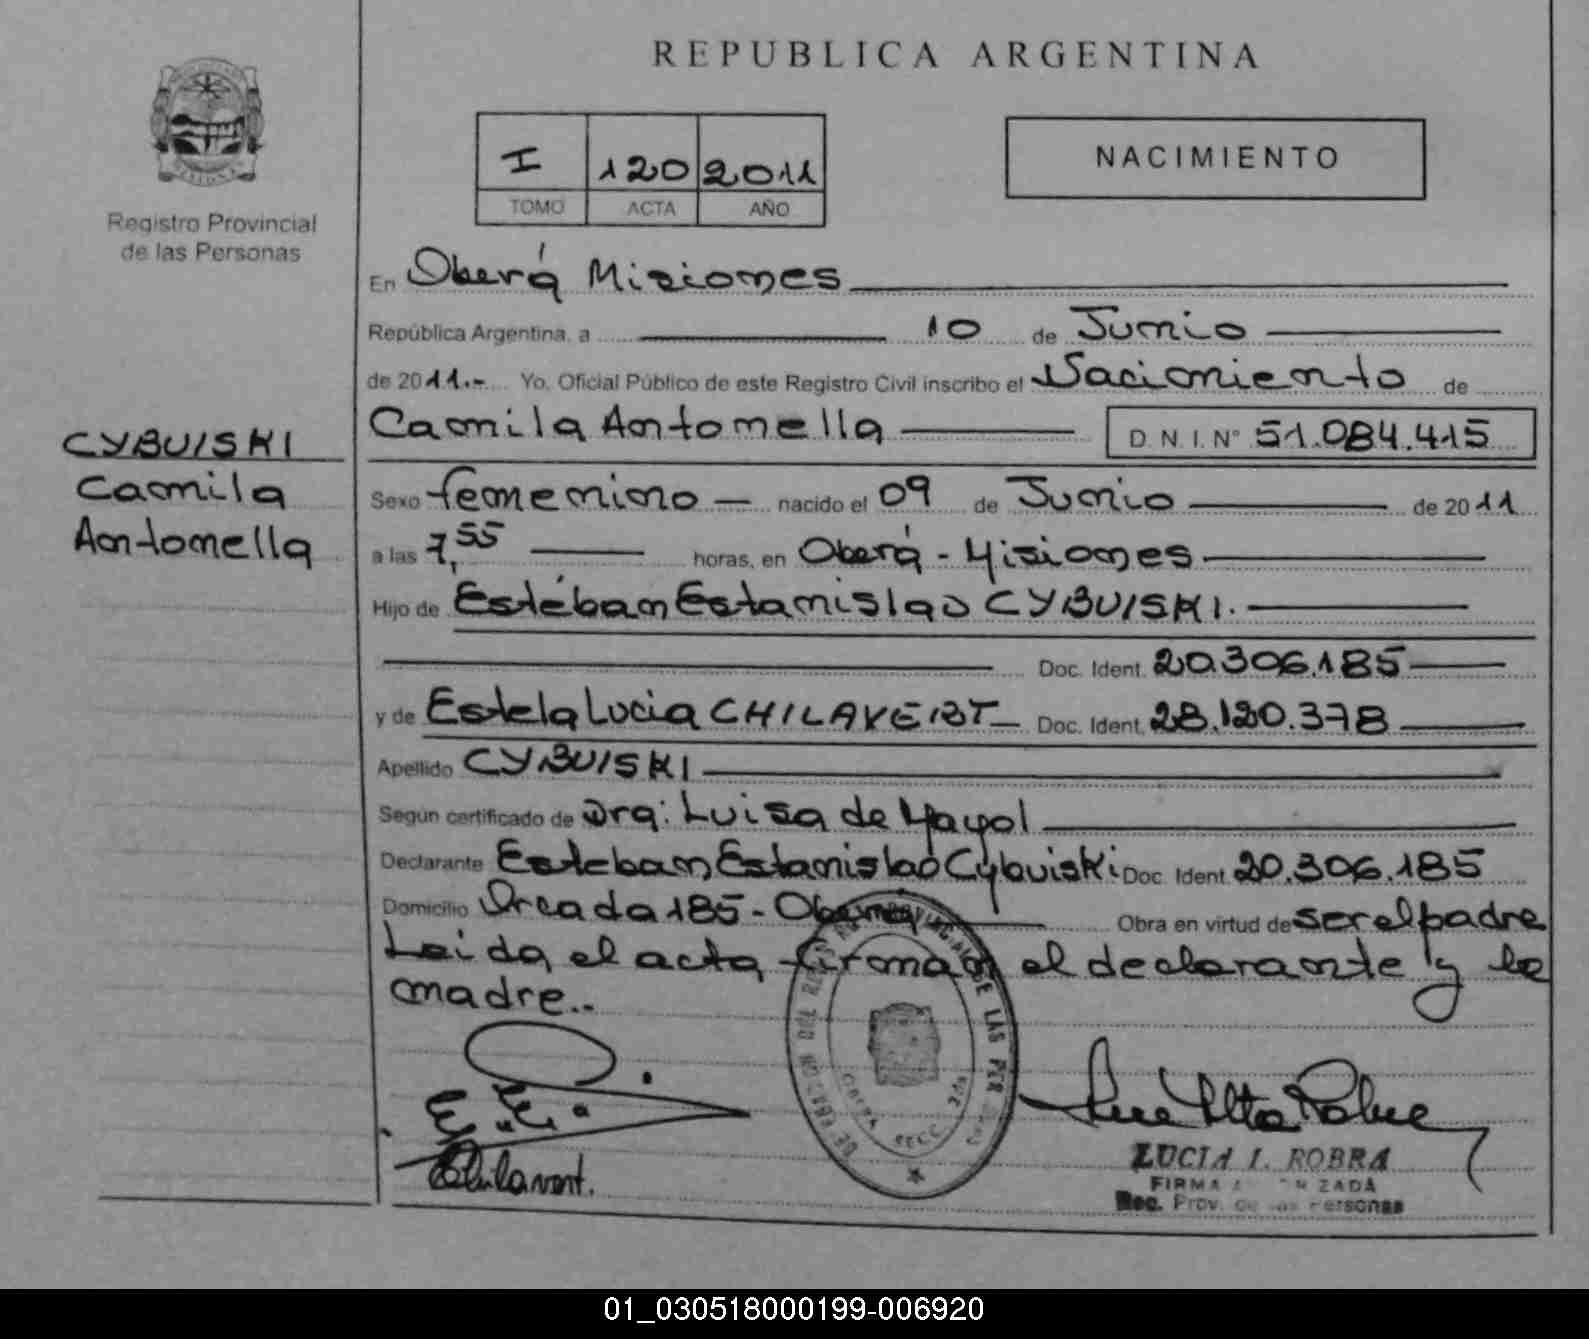 REPUBLICA ARGENTINA
I 120 2011
TOMO ACTA AÑO
NACIMIENTO
Registro Provincial
de las Personas
CYBUISKI
Camila
Antonella
En Oberá Misiones
República Argentina, a 10 de Junio
de 2011.- Yo, Oficial Público de este Registro Civil inscribo el Nacimiento de
Camila Antonella D. N. I. N° 51.084.415
Sexo femenino nacido el 09 de Junio de 2011
a las 7,55 horas, en Oberá - Misiones
Hijo de Estéban Estanislao CYBUISKI.
Doc. Ident. 20.306.185
y de Estela Lucia CHILAVERT Doc. Ident. 28.120.378
Apellido CYBUISKI
Según certificado de Dra: Luisa de Mayol
Declarante Esteban Estanislao Cybuiski Doc. Ident. 20.306.185
Domicilio 185 - Oberá Obra en virtud de ser el padre
Leida el acta firman el declarante y la
madre..
Chilavert.
LUCIA I. ROBRA
FIRMA
Reg. Prov. de las Personas
01_030518000199-006920